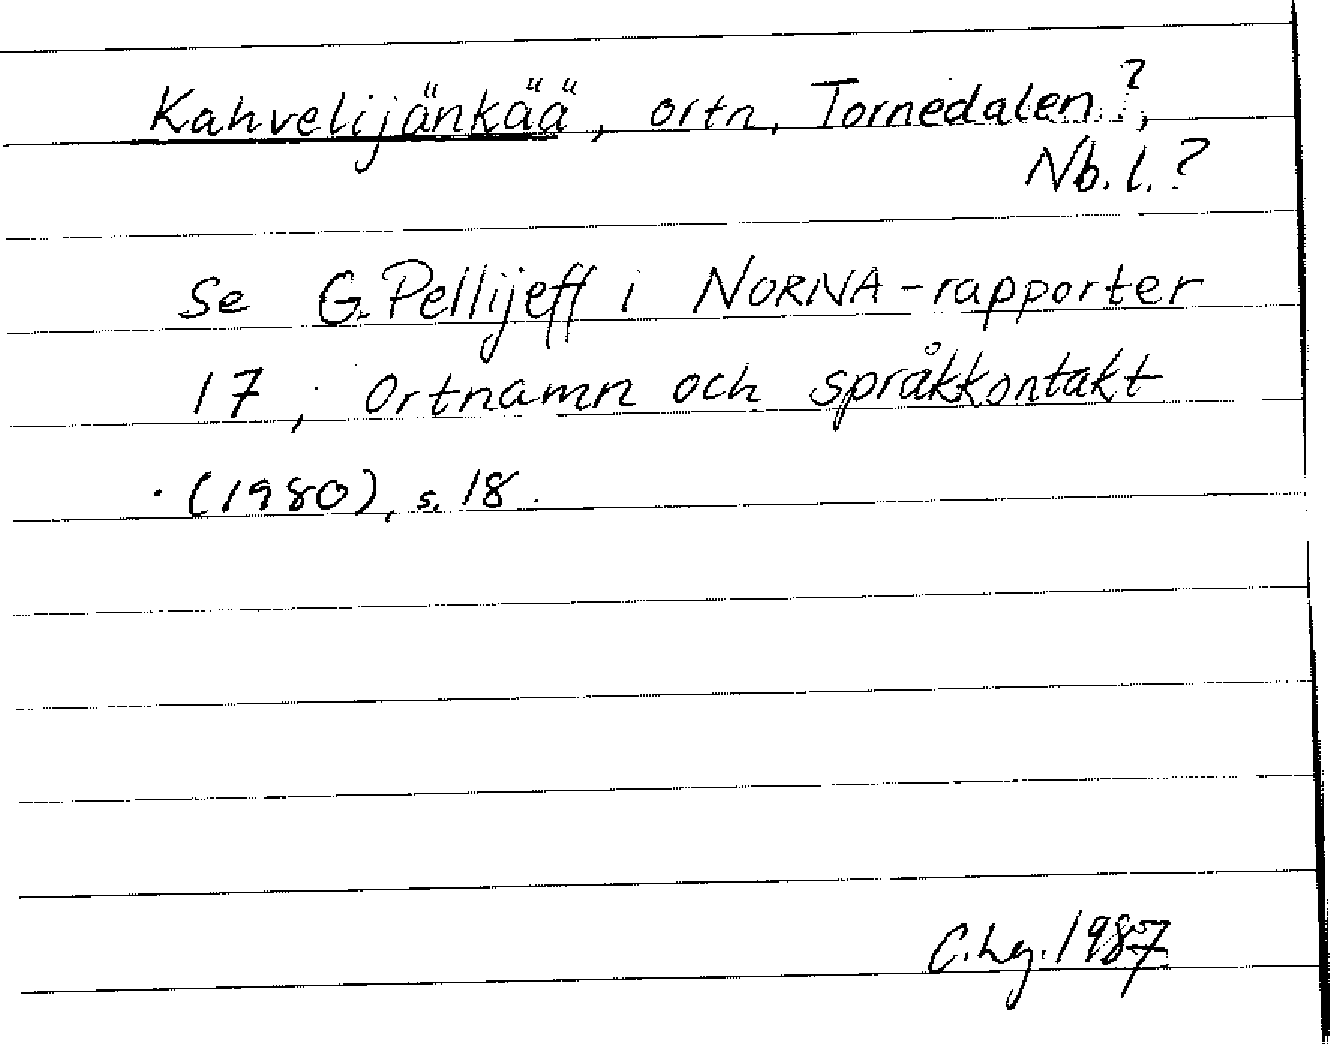 Kahvelijänkää, ortn, Tornedalen?,
Nb. l.?
Se G. Pellijeff i NORNA-rapporter
17, Ortnamn och språkkontakt
(1980), s. 18.
C. Lg. 1987